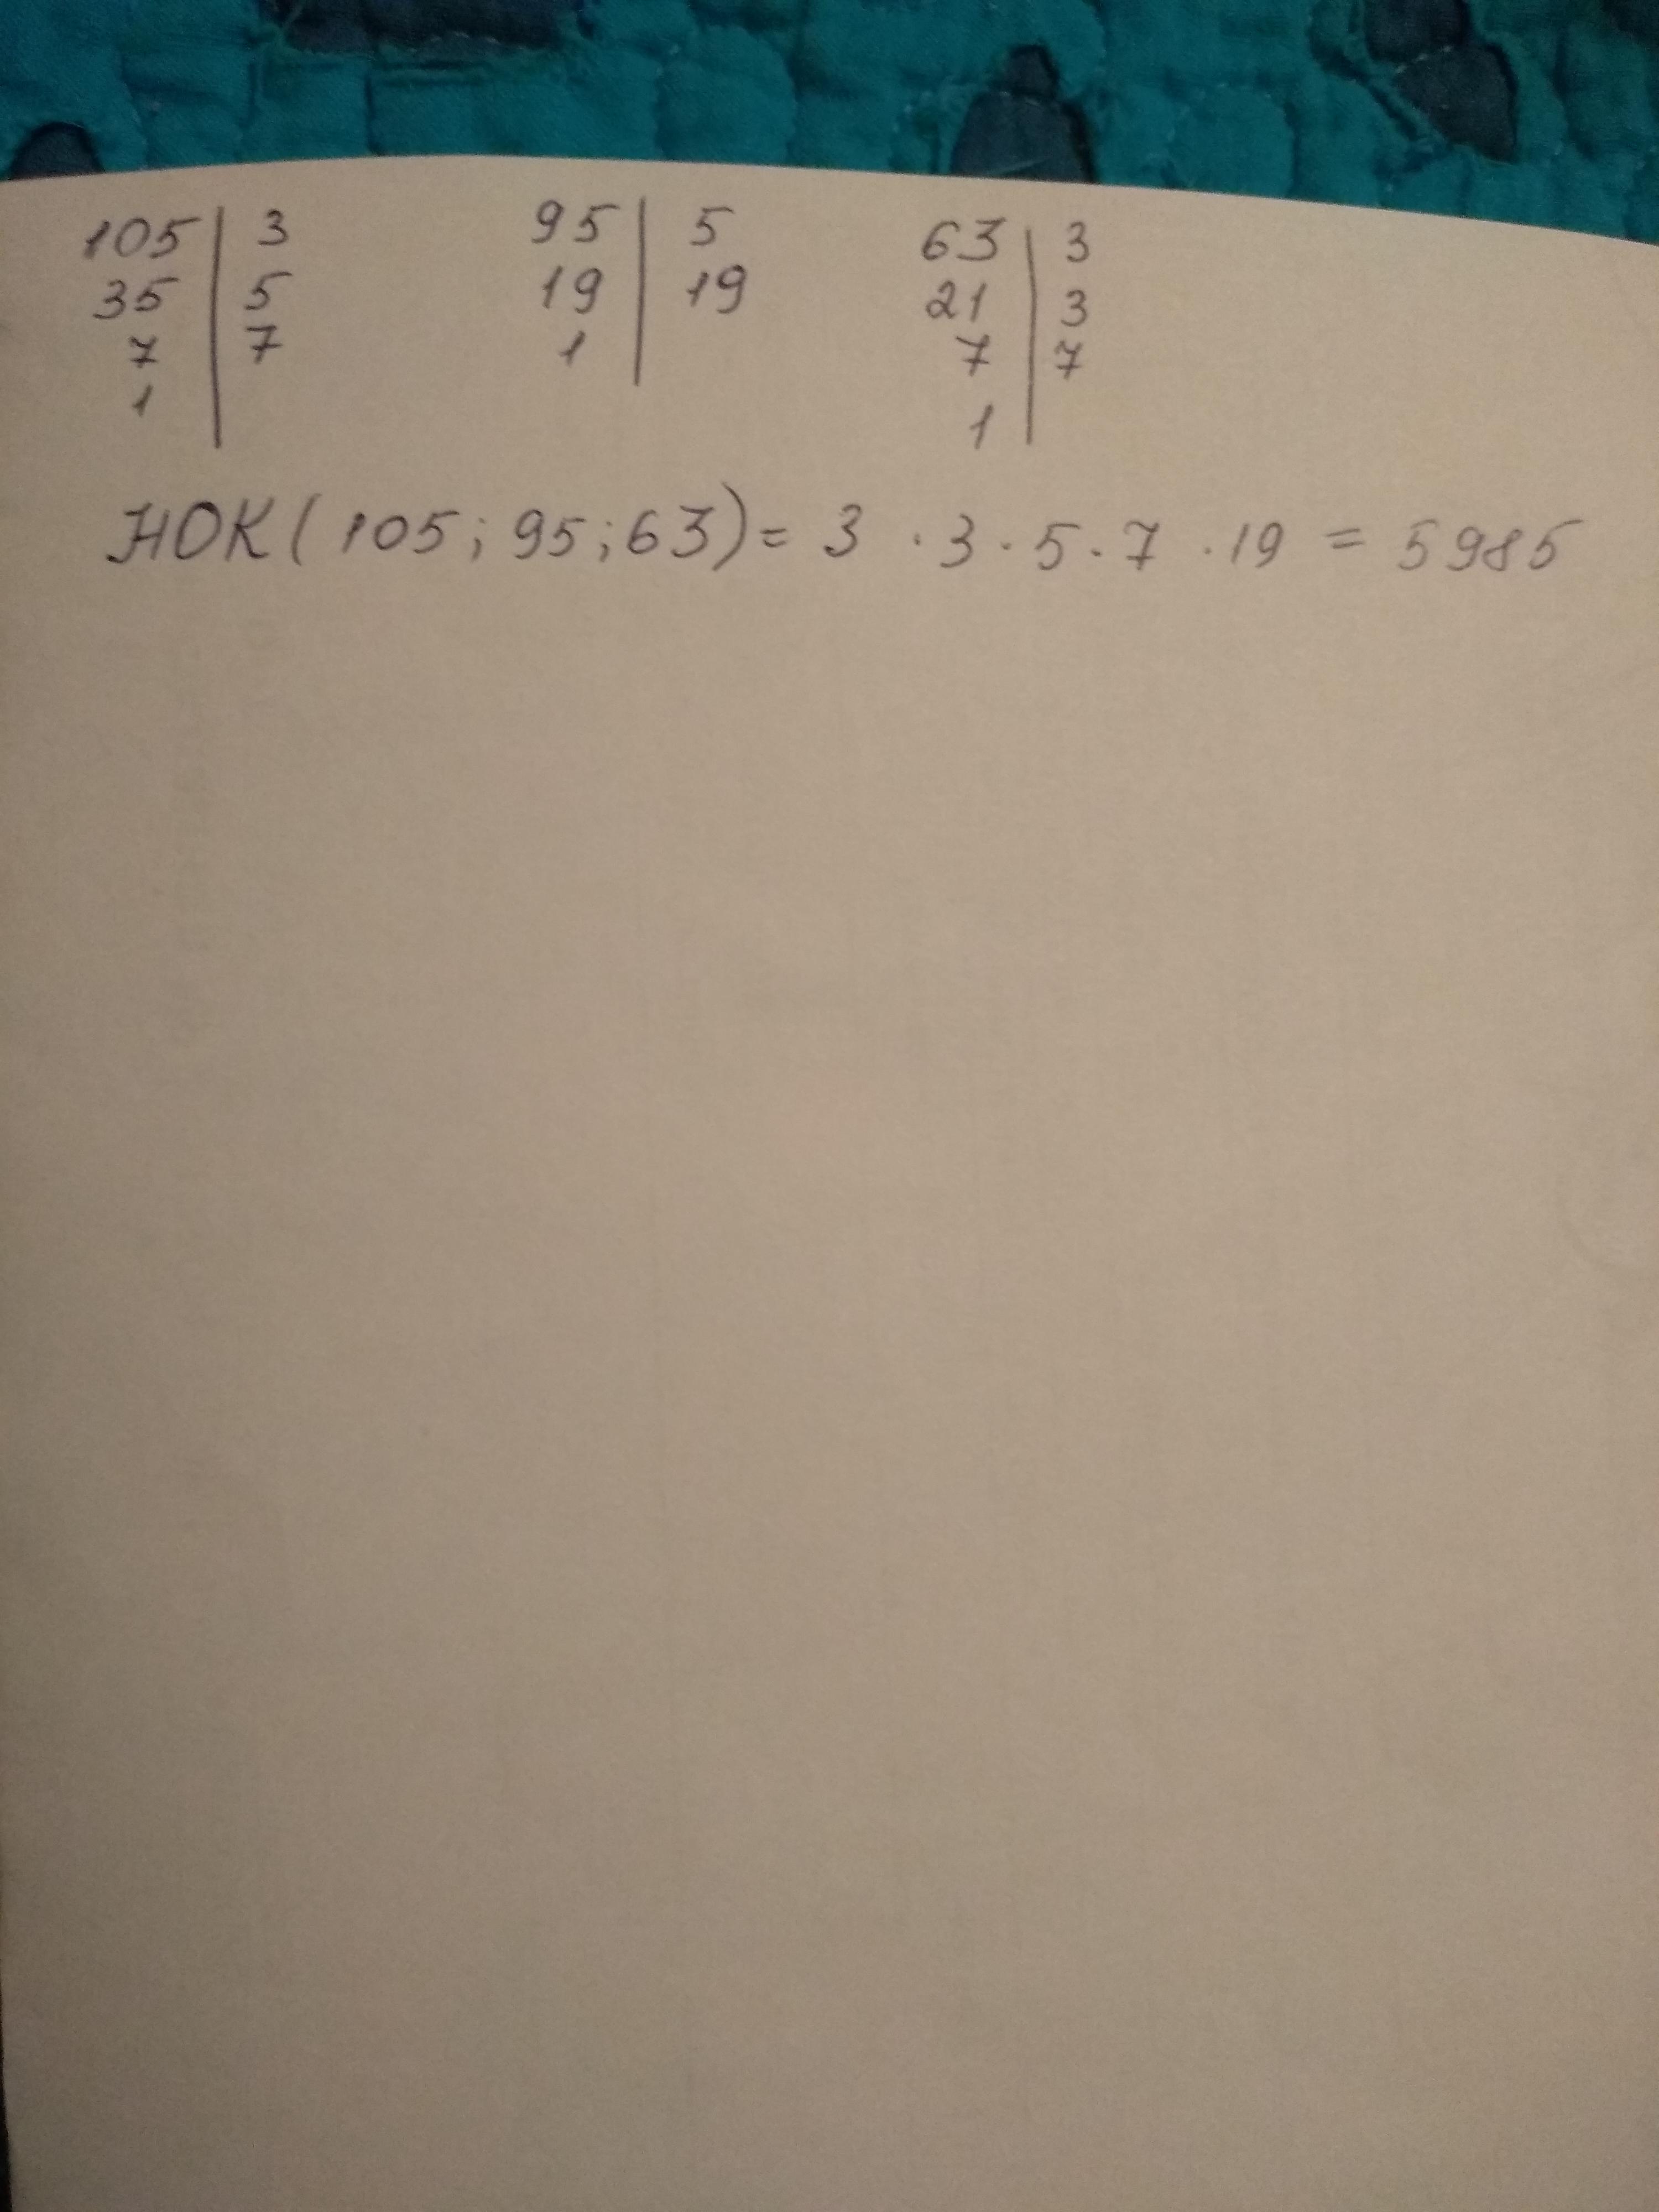 105 | 3 95 | 5 63 | 3
35 | 5 19 | 19 21 | 3
7 | 7 1 | 7 | 7
1 | 1 |
НОК(105; 95; 63) = 3 · 3 · 5 · 7 · 19 = 5985